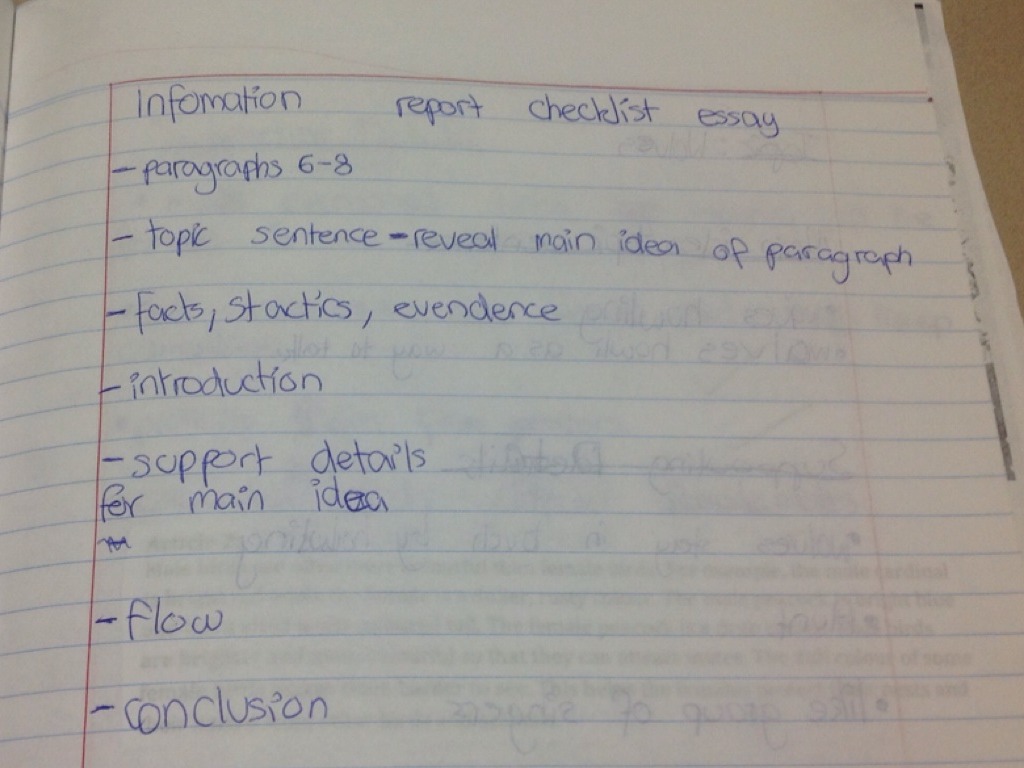 Infomation report checklist essay
- paragraphs 6-8
- topic sentence - reveal main idea of paragraph
- facts, stactics, evendence
- introduction
- support details
for main idea
- flow
- conclusion